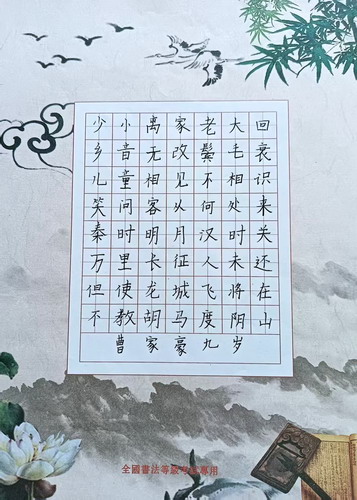 少小离家老大回
乡音无改鬓毛衰
儿童相见不相识
笑问客从何处来
秦时明月汉时关
万里长征人未还
但使龙城飞将在
不教胡马度阴山
曹家豪九岁
全國書法等級考試專用